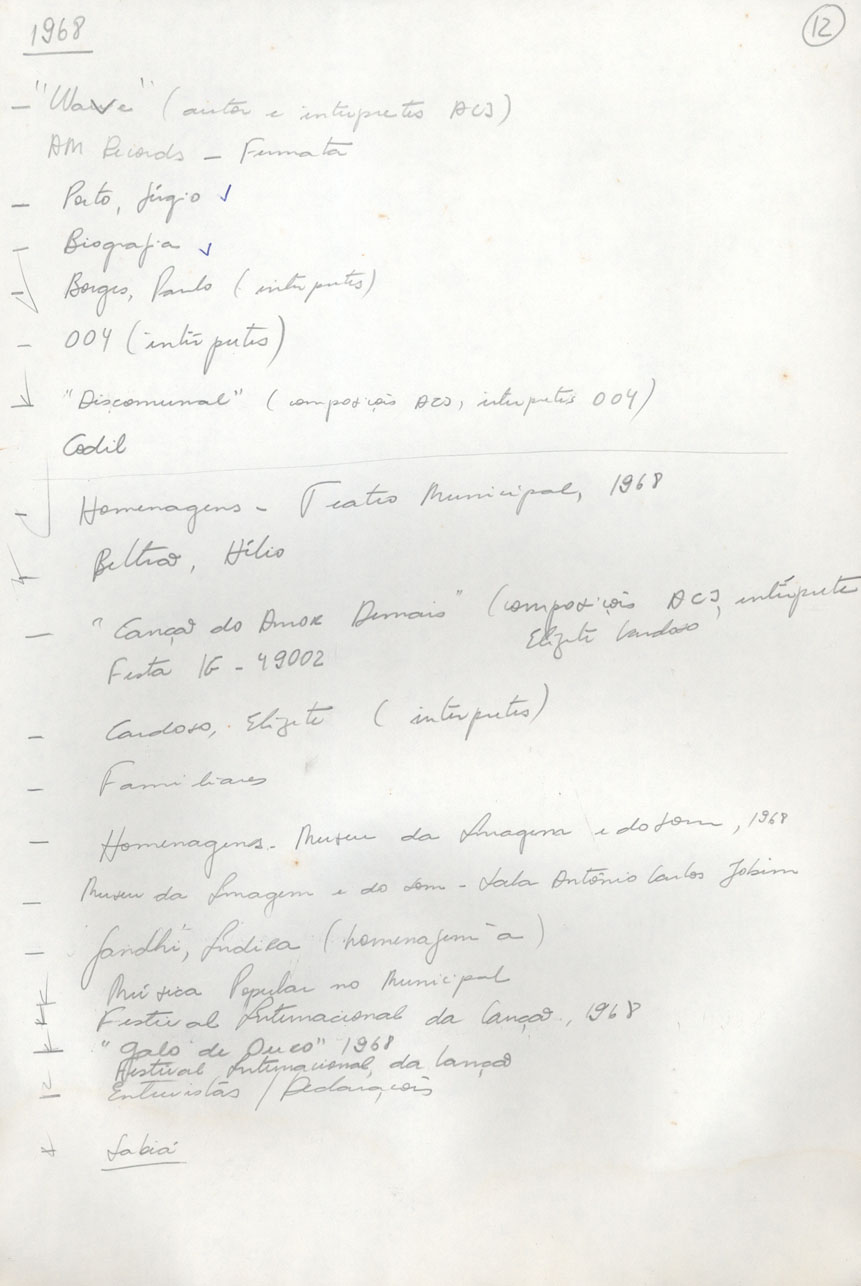 1968
12
- "Wave" (autor e intérpretes ACJ)
AM Records - Fermata
- Porto, Sérgio ✓
- Biografia ✓
- Borges, Paulo (intérpretes)
- 004 (intérpretes)
- "Discomunal" (composições ACJ, intérpretes 004)
Codil
- Homenagens - Teatro Municipal, 1968
Beltrão, Hélio
- "Canção do Amor Demais" (composições ACJ, intérprete
Elizete Cardoso
Festa IG - 49002
- Cardoso, Elizete (intérpretes)
- Familiares
- Homenagens - Museu da Imagem e do Som, 1968
- Museu da Imagem e do Som - Sala Antônio Carlos Jobim
- Gandhi, Indira (homenagem a)
Música Popular no Municipal
Festival Internacional da Canção, 1968
"Galo de Ouro" 1968
Festival Internacional da Canção
Entrevistas / Declarações
Sabiá